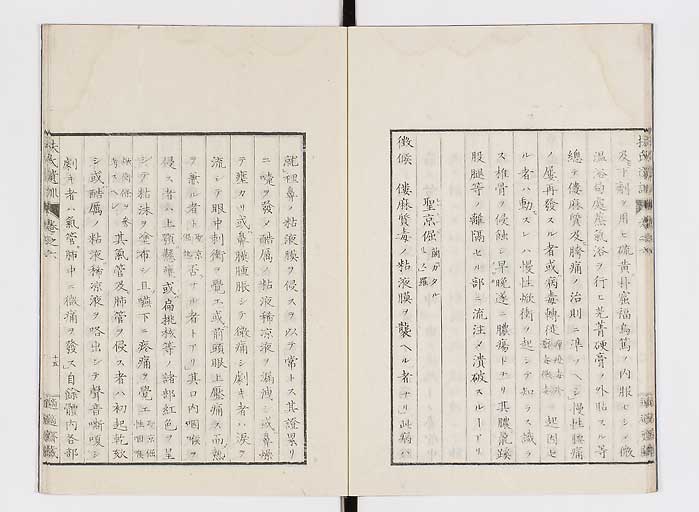 及下剤ヲ用ヒ硫黄朴蜜福烏篤ノ内服セシメ微
温浴局處蒸氣浴ヲ行ヒ芫菁硬膏ノ外貼スル等
總テ僂麻質及胯痛ノ治則ニ準ッヘシ慢性腰痛
ノ屡再發スル者或病毒轉徙 ニ起因セ
ル者ハ動スレハ慢性焮衝ヲ起シテ知ラス識ラ
ス椎骨ヲ侵蝕シ早晩遂ニ膿瘍トナリ其膿鼠蹊
股腿等ノ離隔セル部ニ流注メ潰破スルーアリ
聖京倔 蘭加タル
徴候 僂麻質毒ノ粘液膜ヲ襲ヘル者ナリ此病ハ
就中鼻ノ粘液膜ヲ侵スヲ以テ常トス其證累リ
ニ嚏ヲ發メ酷厲ノ粘液稀涼液ヲ漏洩シ或鼻燥
テ壅カリ或鼻膜腫脹シテ微痛シ劇キ者ハ涙ヲ
流シテ眼中刺衝ヲ覺エ或前頭眼上壓痛メ而熱
ヲ兼ル者ト 否サル者トアリ其口内咽喉ヲ
侵ス者ハ上顎懸壅或扁挑核等ノ諸部紅色ヲ呈
シテ粘沫ヲ塗布シ且嚥下ニ疼痛ヲ覺エ
其氣管及肺管ヲ侵ス者ハ初起乾欬
シ或酷厲ノ粘液稀涼液ヲ咯出シテ聲音嘶嗄シ
劇キ者ハ氣管肺中ニ微痛ヲ發ス自餘體内各部
十五